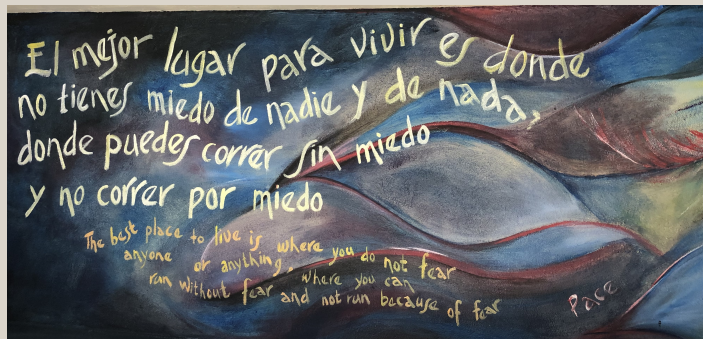 El mejor lugar para vivir es donde
no tienes miedo de nadie y de nada,
donde puedes correr sin miedo
y no correr por miedo
The best place to live is where you do not fear
anyone or anything, where you can
run without fear and not run because of fear
Pace